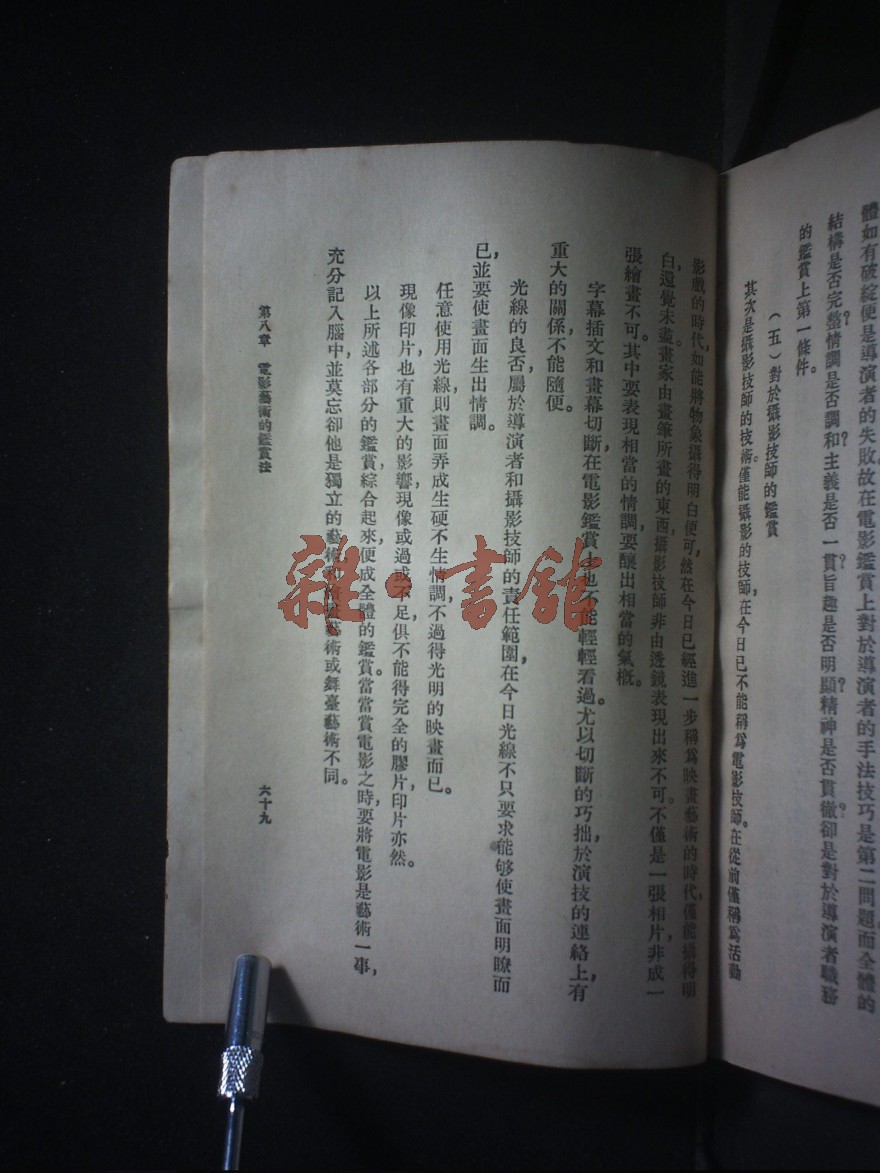 體如有破綻便是導演者的失敗故在電影鑑賞上對於導演者的手法技巧是第二問題而全體的
結構是否完整?情調是否調和?主義是否一貫?旨趣是否明顯?精神是否貫徹?卻是對於導演者職務
的鑑賞上第一條件。
(五)對於攝影技師的鑑賞
其次是攝影技師的技術。僅能攝影的技師,在今日已不能稱爲電影技師。在從前僅稱爲活動
影戲的時代,如能將物象攝得明白便可,然在今日已經進一步稱爲映畫藝術的時代,僅能攝得明
白,還覺未盡。畫家由畫筆所畫的東西,攝影技師非由透鏡表現出來不可。不僅是一張相片,非成一
張繪畫不可。其中要表現相當的情調,要釀出相當的氣概。
字幕插文和畫幕切斷,在電影鑑賞上也不能輕輕看過。尤以切斷的巧拙,於演技的連絡上,有
重大的關係,不能隨便。
光線的良否,屬於導演者和攝影技師的責任範圍,在今日光線不只要求能够使畫面明瞭而
已,並要使畫面生出情調。
任意使用光線,則畫面弄成生硬,不生情調,不過得光明的映畫而已。
現像印片也有重大的影響,現像或過或不足,俱不能得完全的膠片,印片亦然。
以上所述各部分的鑑賞,綜合起來,便成全體的鑑賞。當當賞電影之時,要將電影是藝術一事,
充分記入腦中,並莫忘卻他是獨立的藝術,和 藝術或舞臺藝術不同。
第八章 電影藝術的鑑賞法
六十九
雜·書館